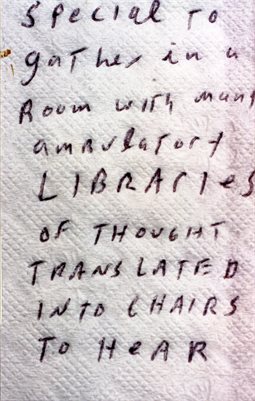 Special to
gather in a
Room with many
ambulatory
LIBRARIeS
OF THOUGHT
TRANSLATED
INTO CHAIRS
To HeAR